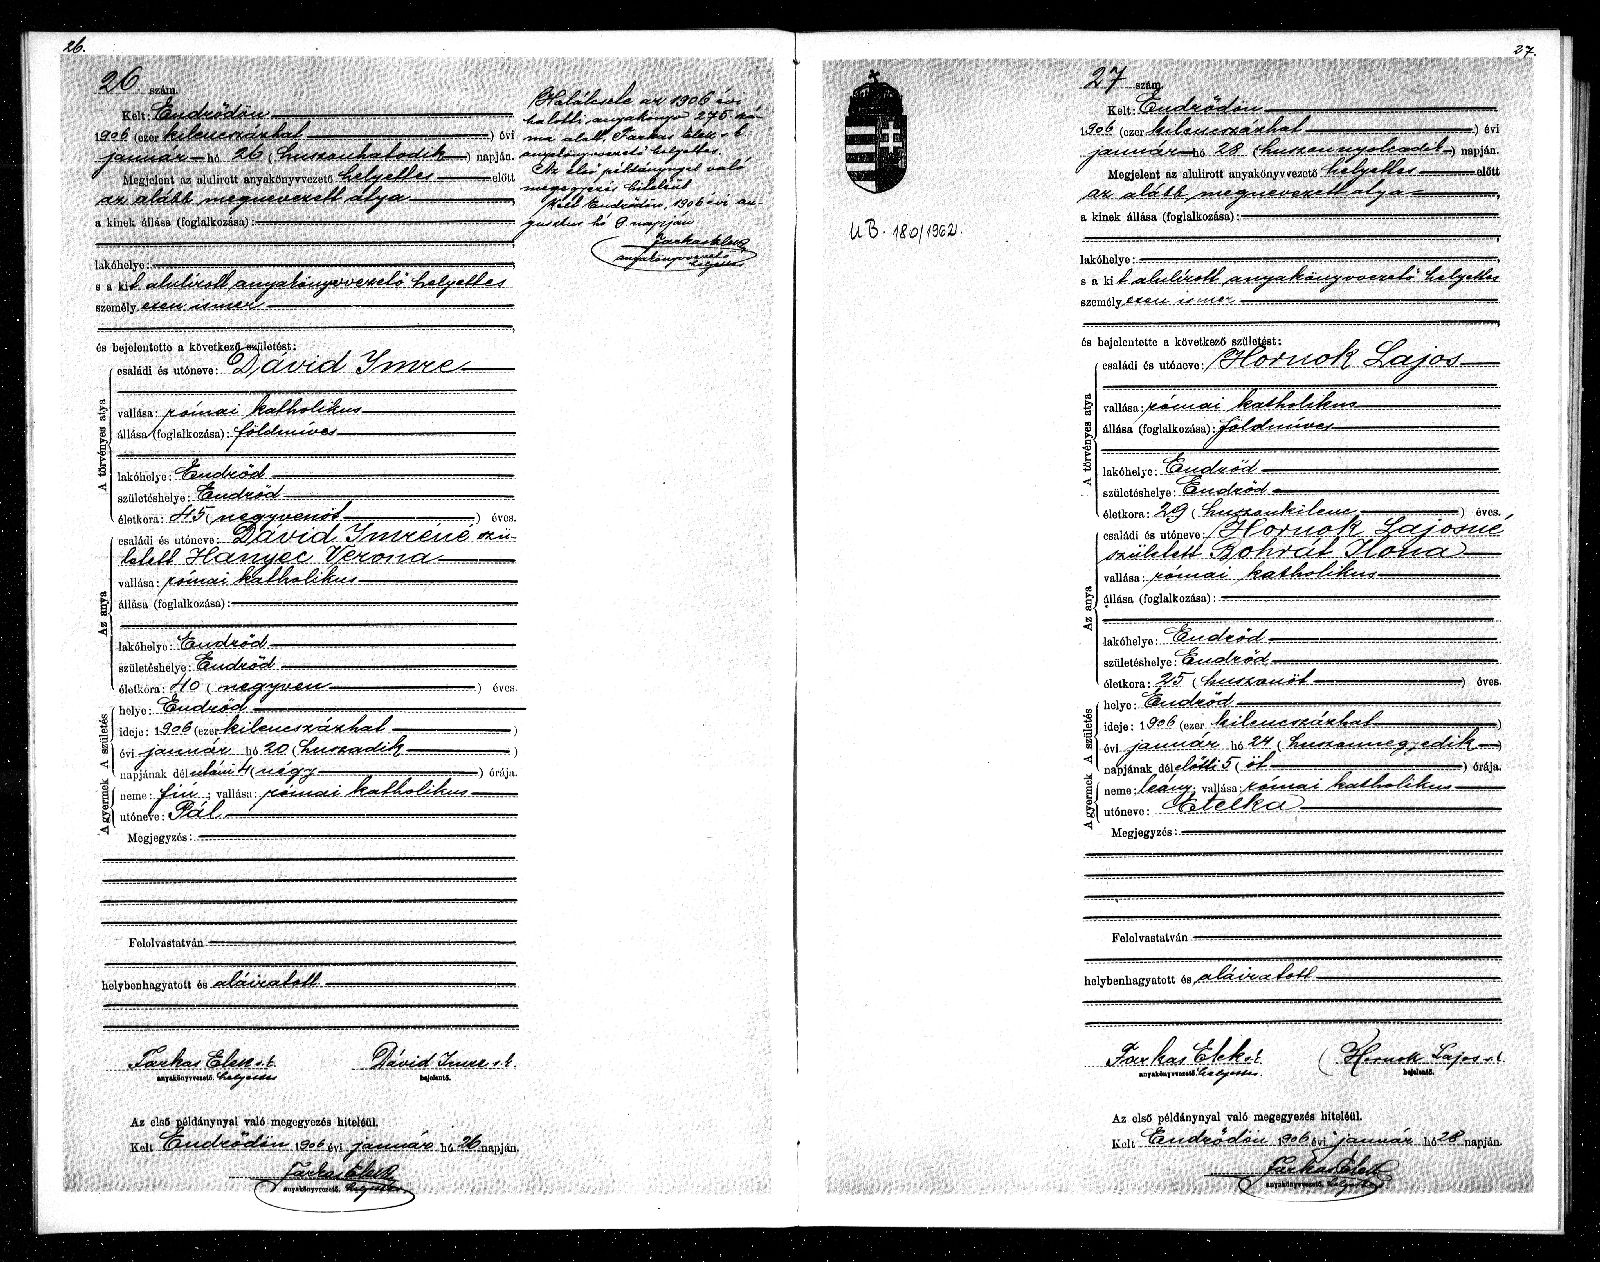 26.
26 szám.
Kelt: Endrődön
1906 (ezer kilenczszázhat) évi
január hó 26 (huszonhatodik) napján.
Megjelent az alulirott anyakönyvvezető helyettes előtt
az alább megnevezett atya
a kinek állása (foglalkozása):
lakóhelye:
s a kit alulírott anyakönyvvezető helyettes
személyesen ismer
és bejelentette a következő születést:
A törvényes atya
családi és utóneve: Dávid Imre
vallása: római katholikus
állása (foglalkozása): földmíves
lakóhelye: Endrőd
születéshelye: Endrőd
életkora: 45 (negyvenöt) éves.
Az anya
családi és utóneve: Dávid Imréné szü-
letett Hanyec Verona
vallása: római katholikus
állása (foglalkozása):
lakóhelye: Endrőd
születéshelye: Endrőd
életkora: 40 (negyven) éves.
A születés
helye: Endrőd
ideje: 1906 (ezer kilenczszázhat)
évi január hó 20 (huszadik)
napjának délutáni 4 (négy) órája.
A gyermek
neme: fiu; vallása: római katholikus
utóneve: Pál
Megjegyzés:
Felolvastatván
helybenhagyatott és aláiratott
Farkas Elek s. k. Dávid Imre s. k.
anyakönyvvezető. helyettes bejelentő.
Az első példánynyal való megegyezés hiteléül.
Kelt Endrődön 1906 évi január hó 26 napján.
Farkas Elek
anyakönyvvezető. helyettes
Halálesete az 1906 évi
halotti anyakönyv 275 szá-
ma alatt, Farkas Elek s. k.
anyakönyvvezető helyettes.
Az első példánynyal való
megegyezés hiteléül
Kelt Endrődön, 1906 évi au-
gusztus hó 9 napján
Farkas Elek
anyakönyvvezető
helyettes
27.
UB. 180/1962.
27 szám.
Kelt: Endrődön
1906 (ezer kilenczszázhat) évi
január hó 28 (huszonnyolczadik) napján.
Megjelent az alulirott anyakönyvvezető helyettes előtt
az alább megnevezett atya
a kinek állása (foglalkozása):
lakóhelye:
s a kit alulírott anyakönyvvezető helyettes
személyesen ismer
és bejelentette a következő születést:
A törvényes atya
családi és utóneve: Hornok Lajos
vallása: római katholikus
állása (foglalkozása): földmíves
lakóhelye: Endrőd
születéshelye: Endrőd
életkora: 29 (huszonkilenc) éves.
Az anya
családi és utóneve: Hornok Lajosné
született Bohrát Ilona
vallása: római katholikus
állása (foglalkozása):
lakóhelye: Endrőd
születéshelye: Endrőd
életkora: 25 (huszonöt) éves.
A születés
helye: Endrőd
ideje: 1906 (ezer kilenczszázhat)
évi január hó 24 (huszonnegyedik)
napjának délelőtti 5 (öt) órája.
A gyermek
neme: leány; vallása: római katholikus
utóneve: Etelka
Megjegyzés:
Felolvastatván
helybenhagyatott és aláiratott
Farkas Elek s. k. Hornok Lajos s. k.
anyakönyvvezető. helyettes bejelentő.
Az első példánynyal való megegyezés hiteléül.
Kelt Endrődön 1906 évi január hó 28 napján.
Farkas Elek
anyakönyvvezető. helyettes